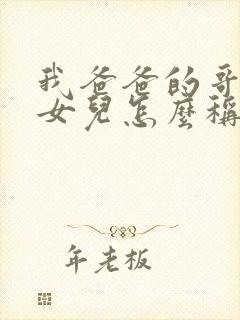 我爸爸的哥
女兒怎麼稱
年老板